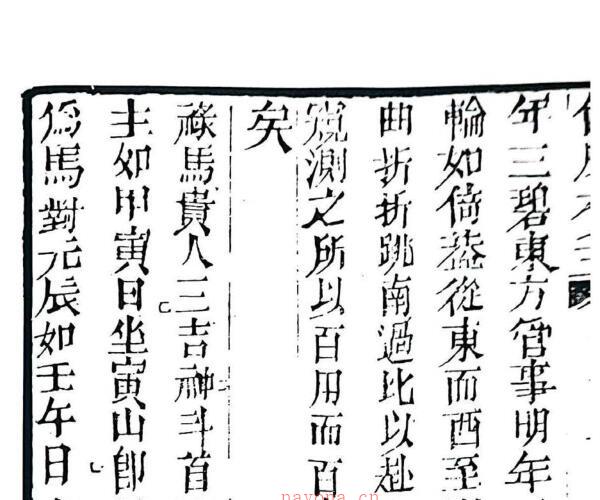 年三碧東方管事明年
輪如倚葢從東而西至
曲折折跳南過北以赴
窺測之所以百用而百
矣
祿馬貴人三吉神斗首
主如甲寅日坐寅山即
為馬對元辰如壬午日
nayona.cn